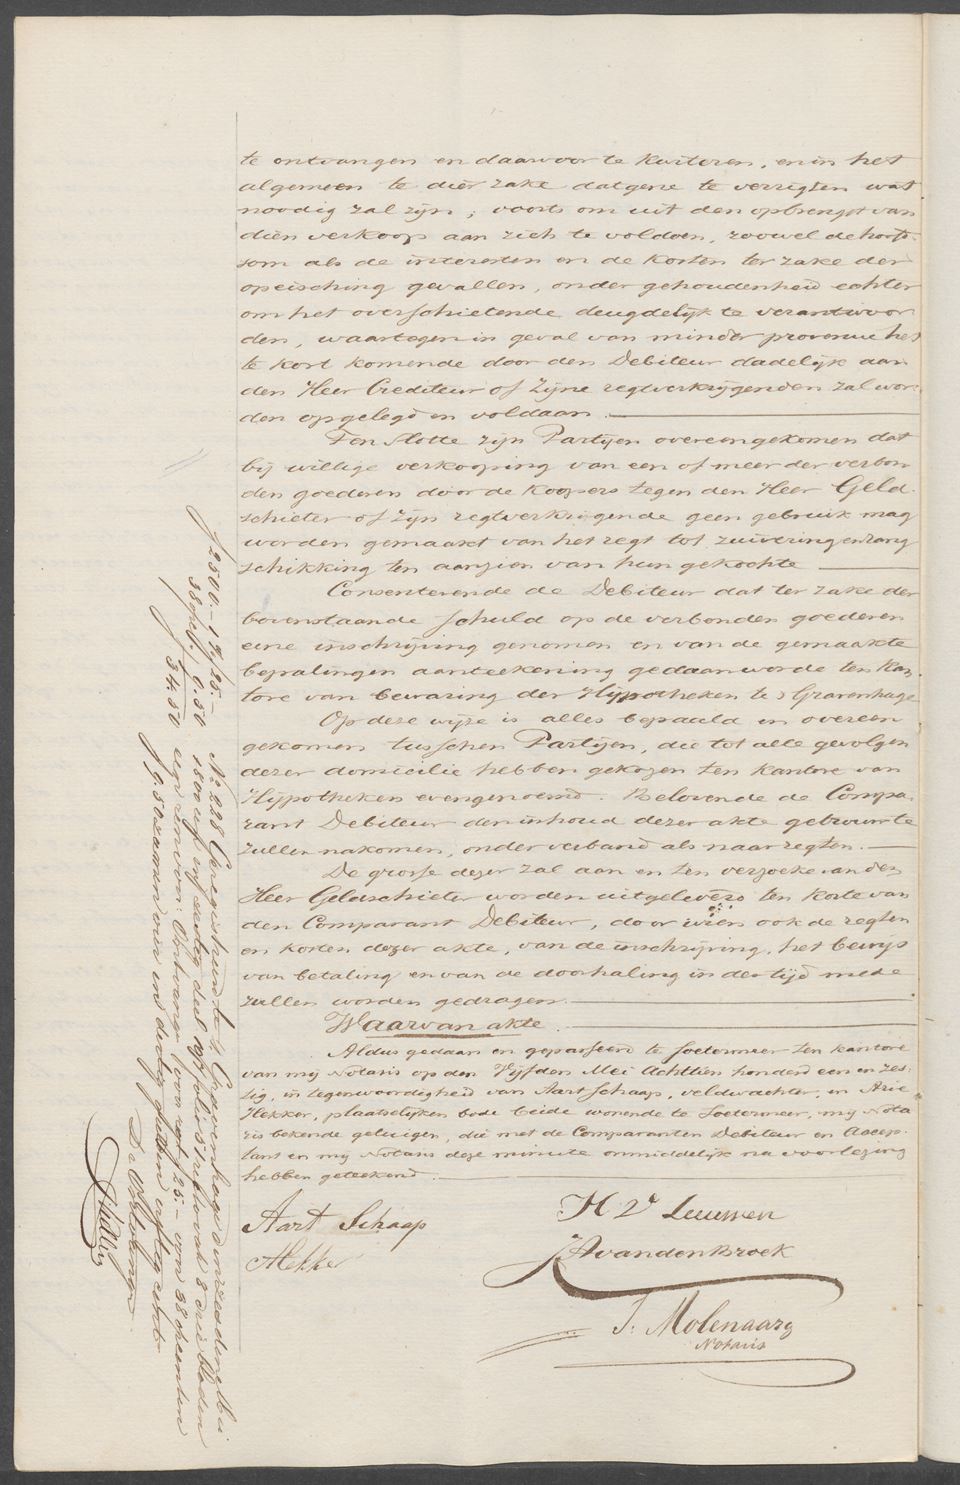 te ontvangen en daarvoor te kwiteren, en in het
algemeen te dier zake datgene te verrigten wat
noodig zal zijn; voorts om uit den opbrengst van
dien verkoop aan zich te voldoen, zoowel de hoofd-
som als de interesten en de kosten ter zake der
opeisching gevallen, onder gehoudenheid echter
om het overschietende deugdelijk te verantwoor
den, waartegen in geval van minder provenue het
te kort komende door den Debiteur dadelijk aan
den Heer Crediteur of zijne regtverkrijgenden zal wor
den opgelegd en voldaan.
Ten slotte zijn Partijen overeengekomen dat
bij willige verkooping van een of meer der verbon
den goederen door de Koopers tegen den Heer Geld-
schieter of zijn regtverkrijgende geen gebruik mag
worden gemaakt van het regt tot zuivering en rang
schikking ten aanzien van hun gekochte
Consenterende de Debiteur dat ter zake der
bovenstaande schuld op de verbonden goederen
eene inschrijving genomen en van de gemaakte
bepalingen aanteekening gedaan worde ten Kan
tore van bewaring der Hypotheken te s Gravenhage
Op deze wijze is alles bepaald en overeen
gekomen tusschen Partijen, die tot alle gevolgen
dezer domicilie hebben gekozen ten kantore van
Hypotheken evengenoemd. Belovende de Compa-
rant Debiteur den inhoud dezer akte getrouw te
zullen nakomen, onder verband als naar regten.
De grosse dezer zal aan en ten verzoeke van den
Heer Geldschieter worden uitgeleverd ten koste van
den Comparant Debiteur, door wien ook de regten
en kosten dezer akte, van de inschrijving, het bewijs
van betaling en van de doorhaling in der tijd mede
zullen worden gedragen.
Waarvan akte.
Aldus gedaan en gepasseerd te Soetermeer ten kantore
van mij Notaris op den Vijfden Mei Achttien honderd een en zes-
tig, in tegenwoordigheid van Aart Schaap, veldwachter, en Arie
Hekker, plaatselijken bode beide wonende te Soetermeer, mij Nota
ris bekende getuigen, die met de Comparanten Debiteur en Accep-
tant en mij Notaris deze minute onmiddelijk na voorlezing
hebben geteekend.
Aart Schaap
AHekker
H Vn Leeuwen
A van den Broek
J. Molenaar
Notaris
f 2500.- 1% 25.-
38 opct. " 9.50
f 34.50
No. 228 Geregistreerd te 's Gravenhage den zesden Mei
1800 een en zestig deel folio vak 8 drie bladen
een renvooi. Ontvangen voor regt f 25.- voor 38 opcenten
f 9.50 zamen vier en dertig gulden vijftig cent
De Ontvanger